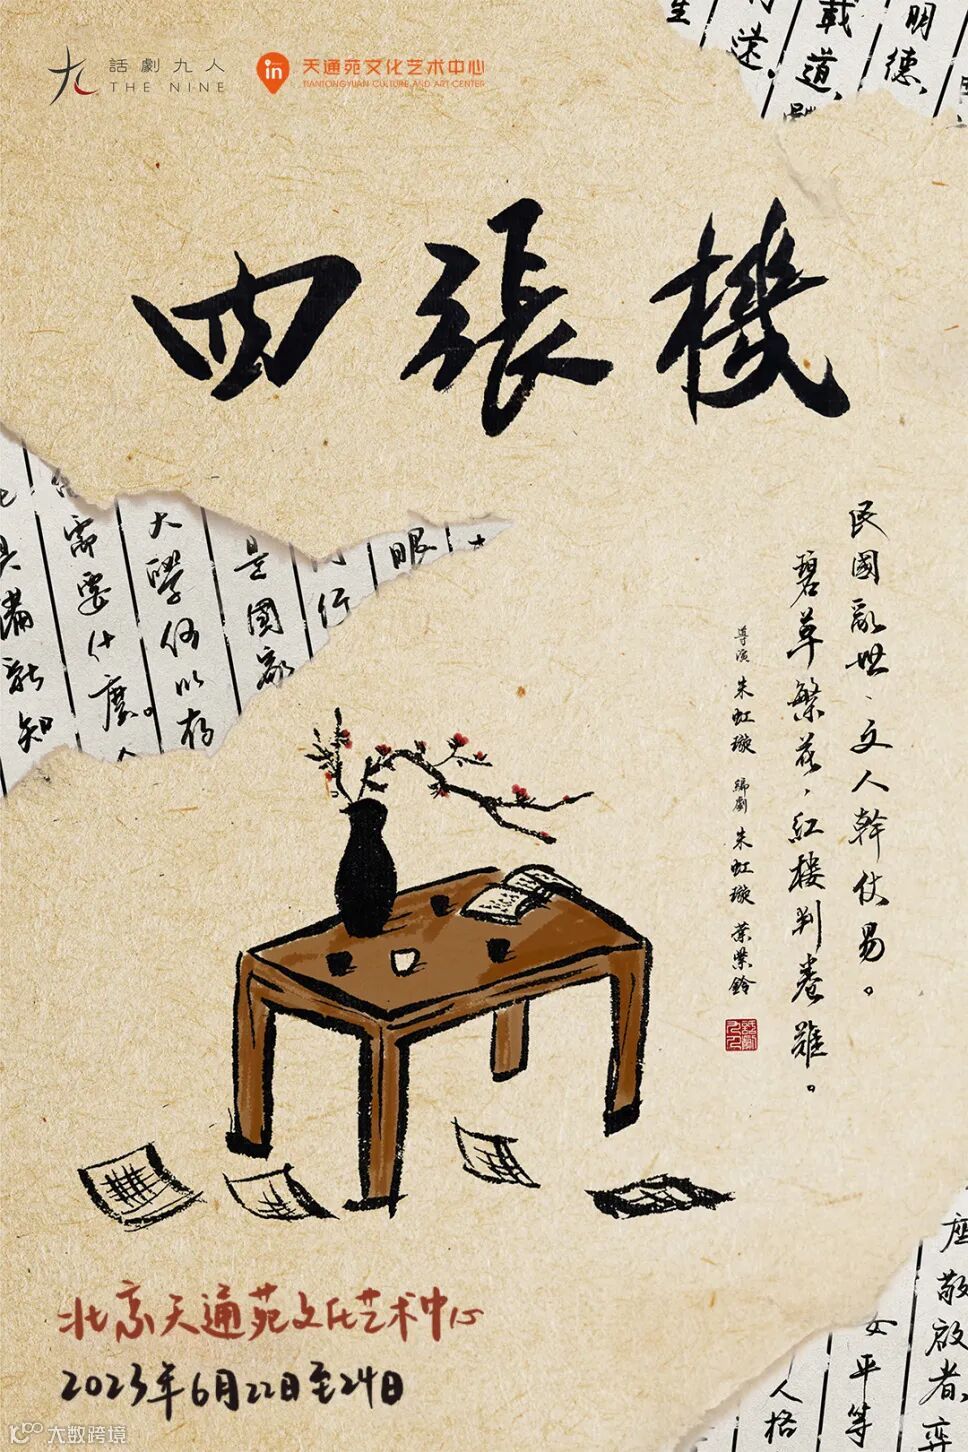 話劇九人
THE NINE
天通苑文化艺术中心
TIANTONGYUAN CULTURE AND ART CENTER
明德
載道
四張機
需要什麼。
大學何以存
是國家
眼
具備新知
民國亂世,文人幹仗易。
碧草繁花,紅樓判卷難。
導演 朱虹璇 編劇 朱虹璇 葉紫鈴
座敬啟者,
女平等
人格
北京天通苑文化艺术中心
2023年6月22日至24日
大数跨境